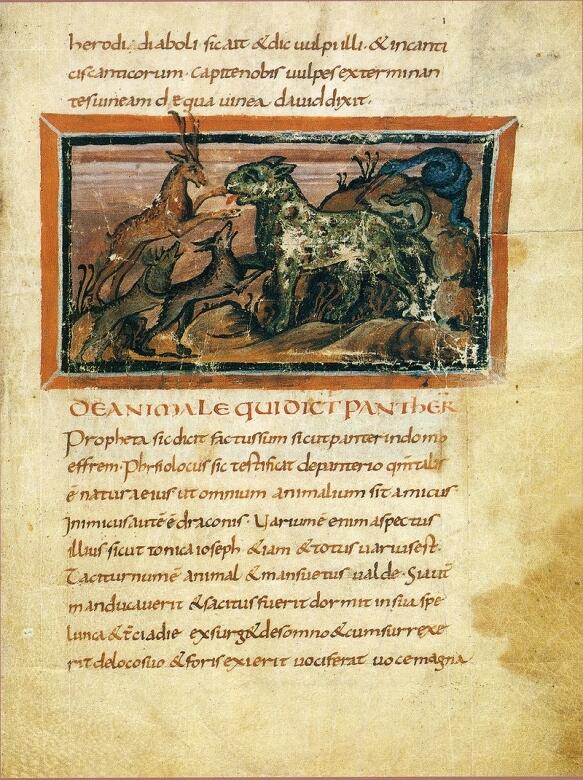 herodi diaboli sic ait & dic uulpi illi · & incanti
cis canticorum · Capite nobis uulpes exterminan
tes uineam de qua uinea dauid dixit ·
DE ANIMALE QUI DICT PANTHER
Propheta sic dicit factus sum sicut panter in domo
effrem · Phisiolocus sic testificat de panterio qm talis
ē natura eius ut omnium animalium sit amicus ·
Inimicus autē ē draconis · Uarium ē enim aspectus
illius sicut tonica ioseph & iam & totus uarius est ·
Taciturnum ē animal & mansuetus ualde · Si aut
manducauerit & saciatus fuerit dormit in sua spe
lunca & t̄cia die exsurg& de somno & cum surrexe
rit de loco suo & foris exierit uociferat uoce magna